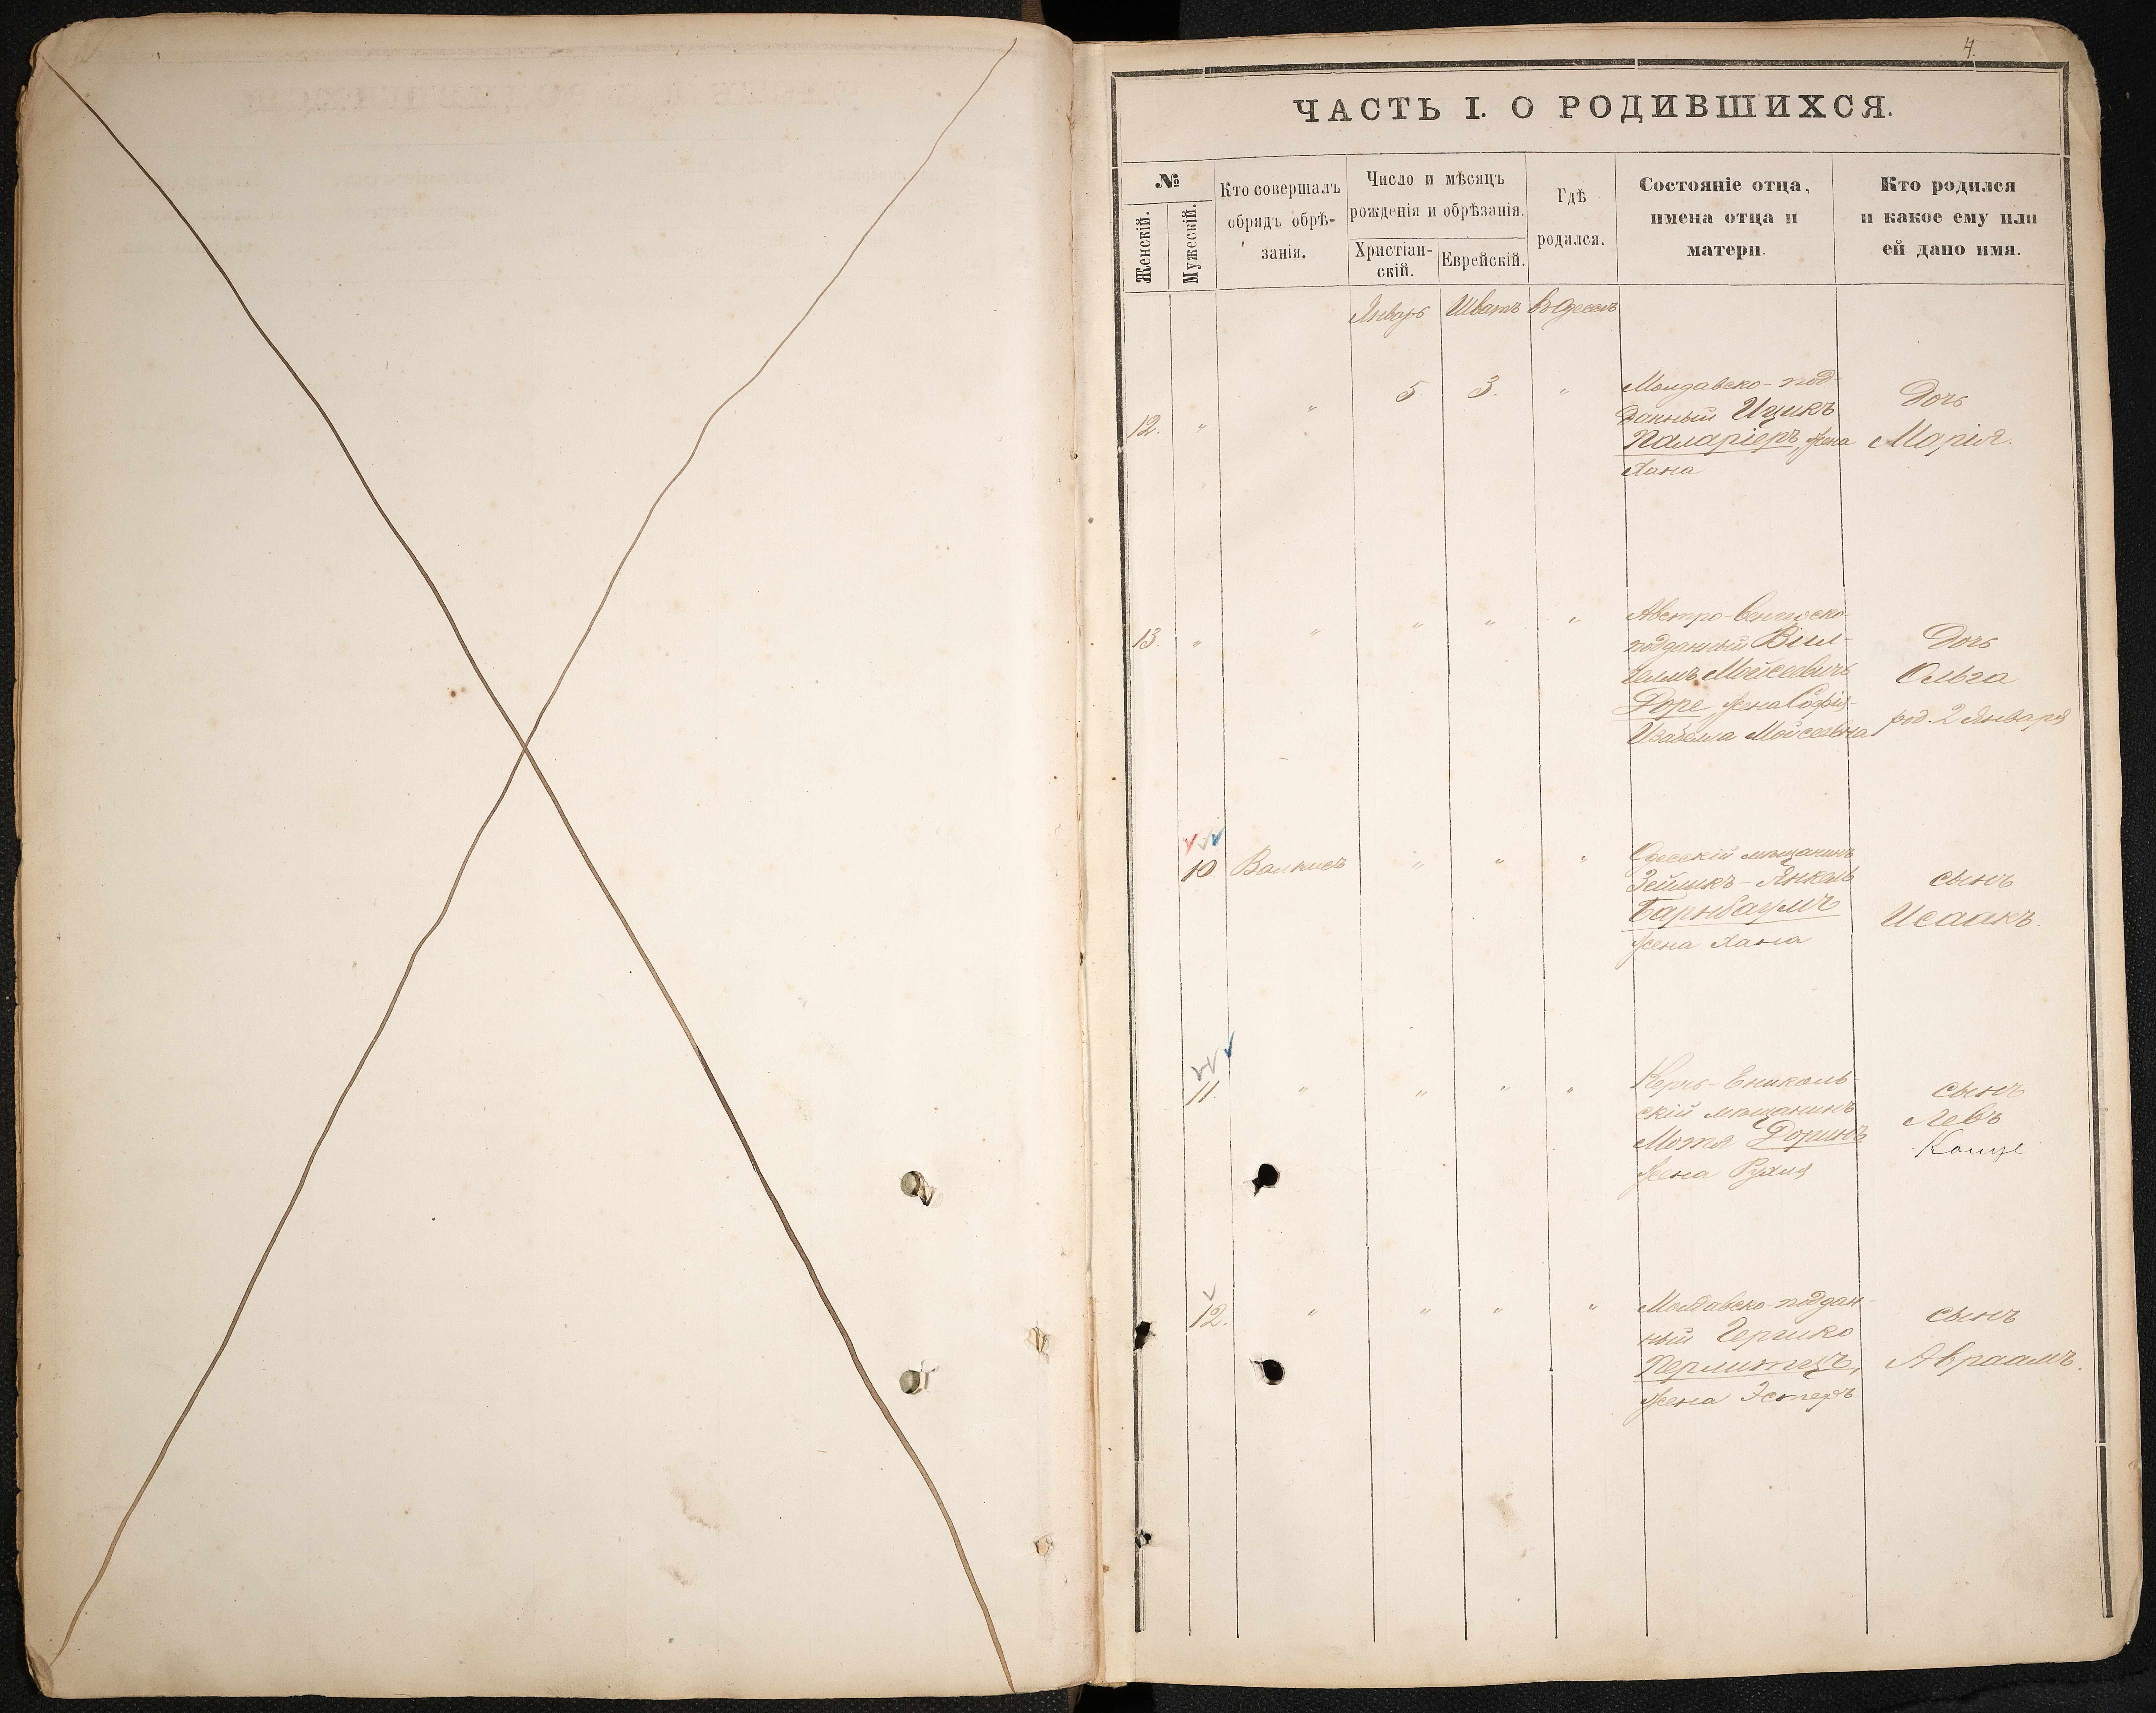 4.
ЧАСТЬ I. О РОДИВШИХСЯ.
№
Женскій.
Мужескій.
Кто совершалъ
обрядъ обрѣ-
занія.
Число и мѣсяцъ
рожденія и обрѣзанія.
Христіан-
скій.
Еврейскій.
Гдѣ
родился.
Состояніе отца,
имена отца и
матери.
Кто родился
и какое ему или
ей дано имя.
Январь Шватъ Въ Одессѣ
12. " " 5 3. "
Молдавско-под-
данный Ицикъ
Паларіеръ, жена
Хана
Дочь
Марія.
13. " " " " "
Австро-Венгерско-
подданный Вил-
гелмъ Мойсеевичъ
Доре, жена Софія-
Изабелла Мойсеевна
Дочь
Ольга
род. 2 Января
10 " " "
Одесскій мѣщанинъ
Зейликъ-Янкель
Барнбаумъ
жена Хана
сынъ
Исаакъ.
11. " " " "
Керчь-Ениколь-
скій мѣщанинъ
Мотя Доринъ
жена Рухля
сынъ
Левъ
12. " " " "
Молдавско-поддан-
ный Гершко
Перлитецъ,
жена Эстеръ
сынъ
Авраамъ.